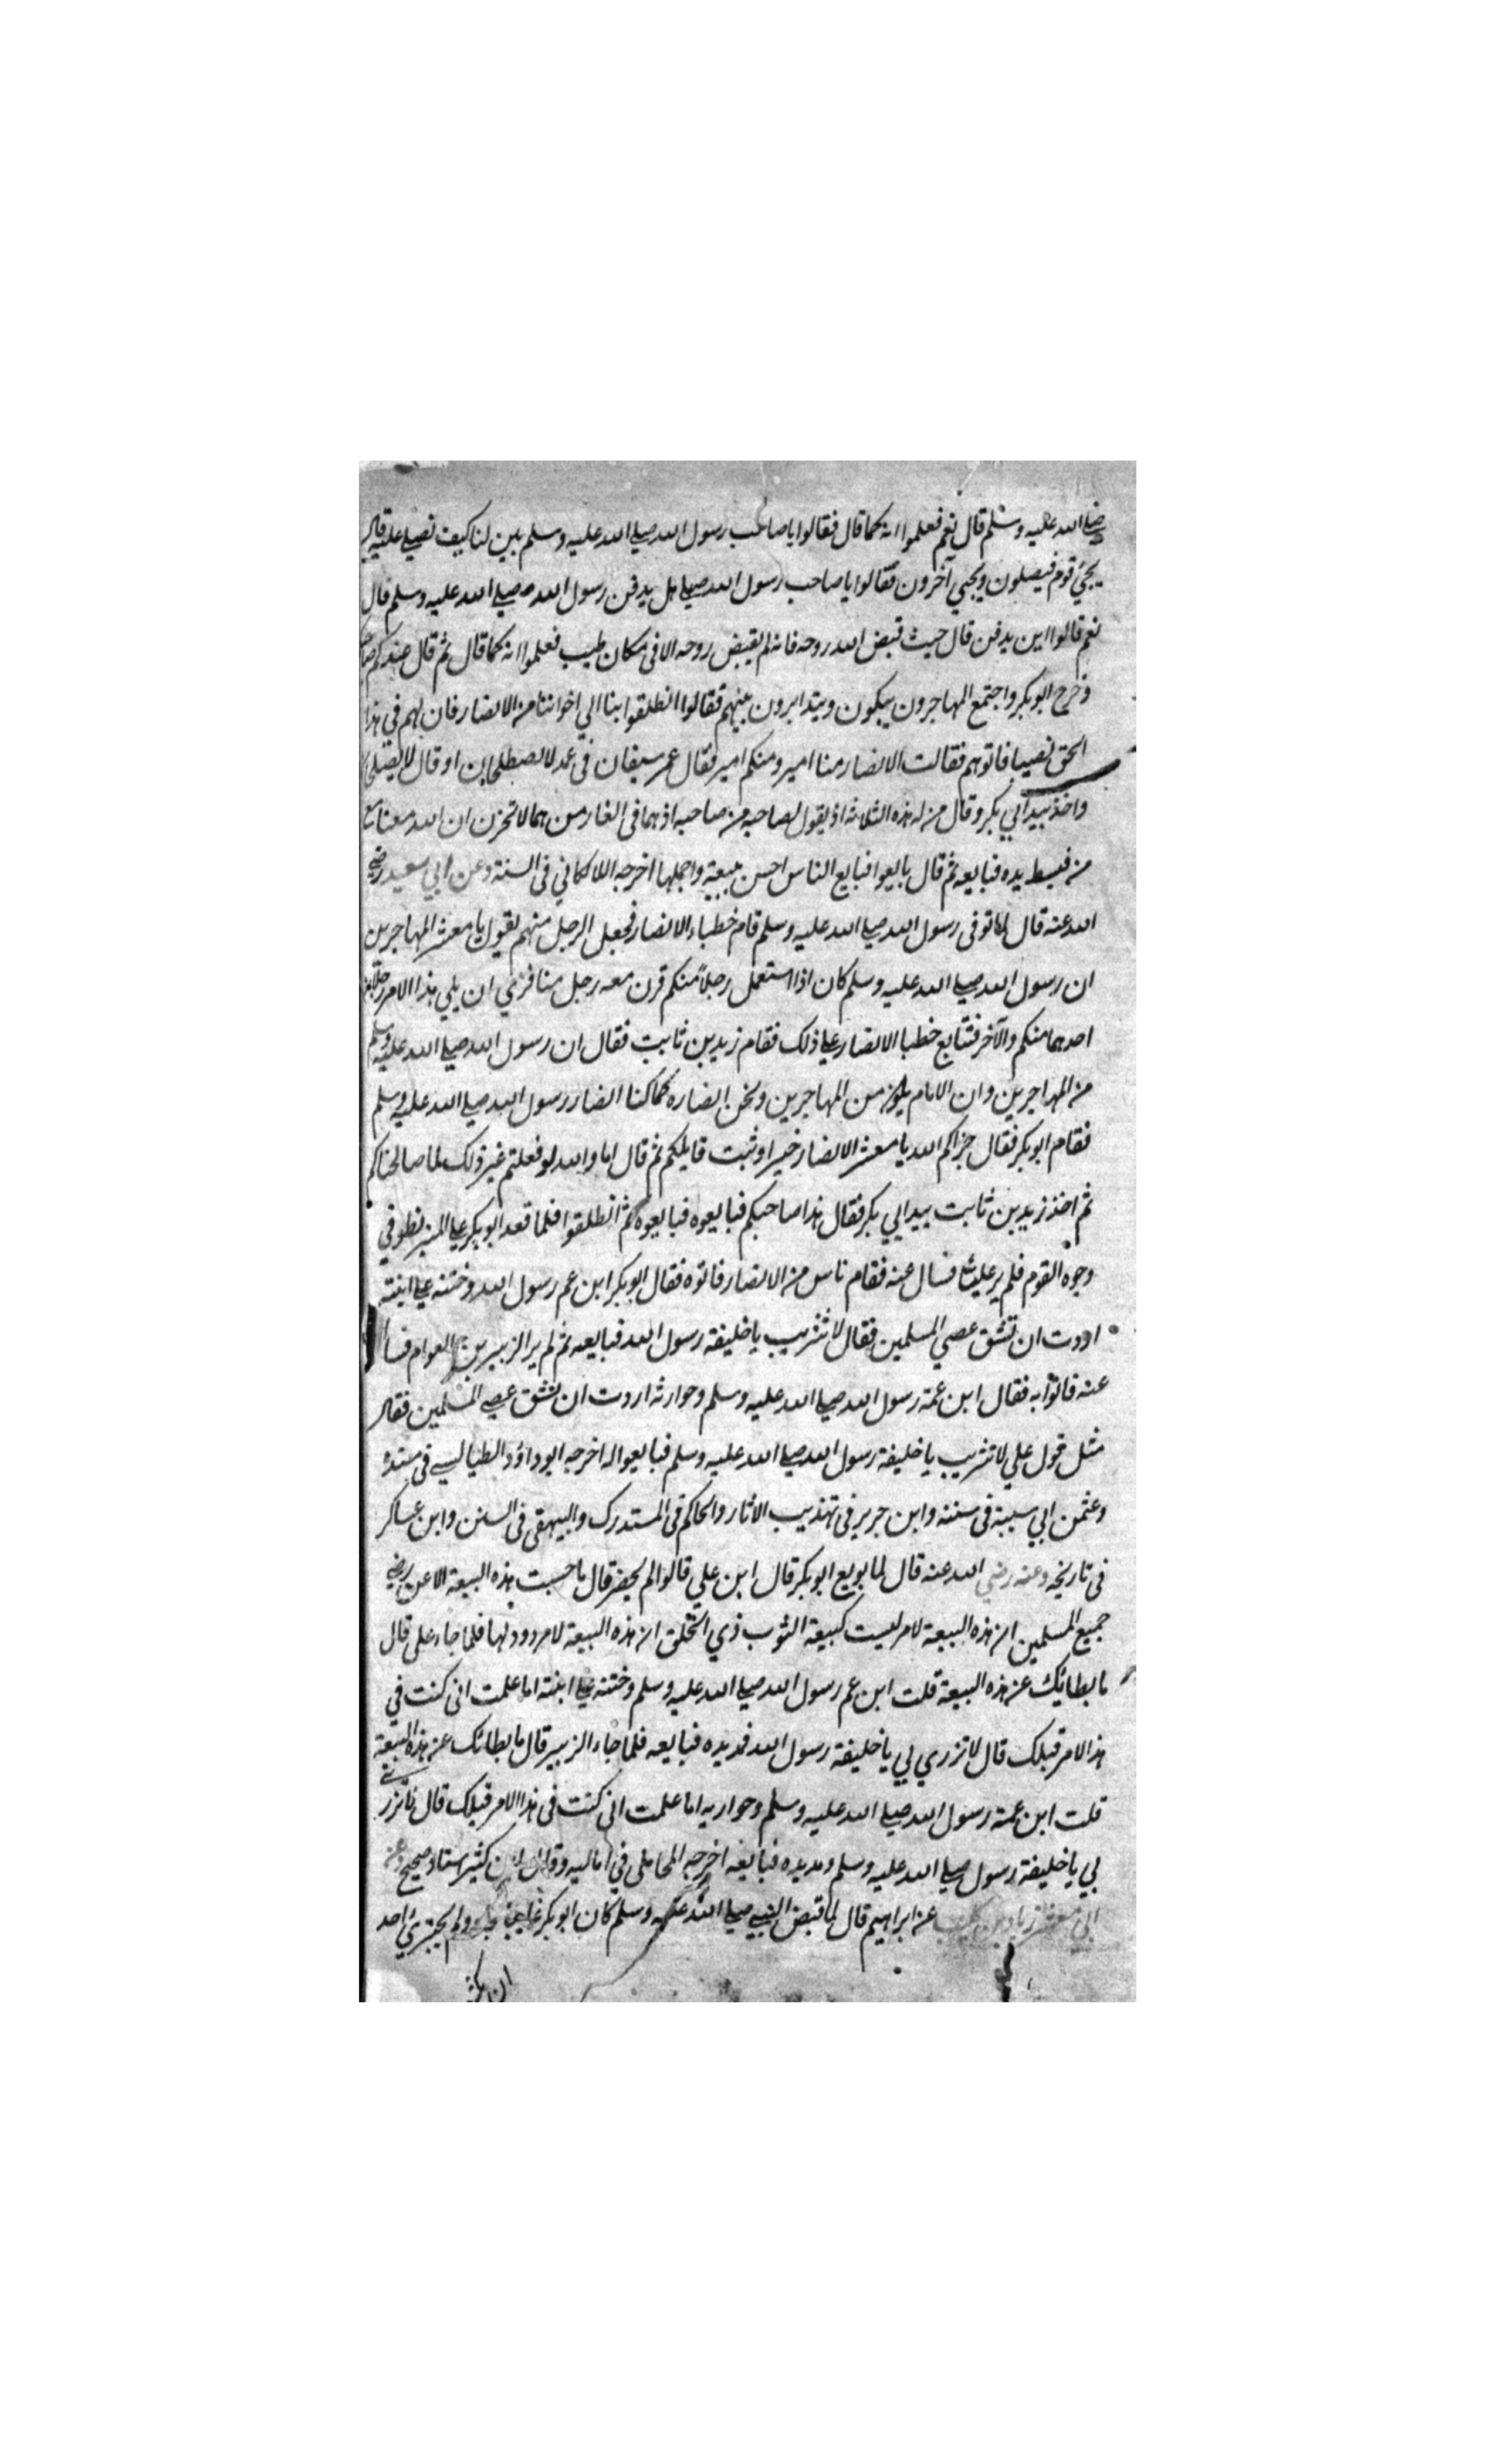 صلى الله عليه وسلم قال نعم فعلموا انه كما قال فقالوا يا صاحب رسول الله صلى الله عليه وسلم بين لنا كيف نصلي عليه قال
يجيء قوم فيصلون ويجيء آخرون فقالوا يا صاحب رسول الله صلى هل يدفن رسول الله صلى الله عليه وسلم قال
نعم قالوا اين يدفن قال حيث قبض الله روحه فانه لم يقبض روحه الا في مكان طيب فعلموا انه كما قال ثم قال عندكم
وخرج ابو بكر واجتمع المهاجرون يبكون ويتدابرون بينهم فقالوا انطلقوا بنا الي اخواننا من الانصار فان لهم في هذا
الحق نصيبا فاتوهم فقالت الانصار منا امير ومنكم امير فقال عمر سيفان في غمد لا يصطلحان او قال لا يصلح
واخذ بيد ابي بكر وقال من له هذه الثلاثه اذ يقول لصاحبه من صاحبه اذ هما في الغار من هما لا تحزن ان الله معنا مع
من فبسط يده فبايعه ثم قال بايعوا فبايع الناس احسن بيعة واجملها اخرجه اللالكائي في السنة وعن ابي سعيد رضي
الله عنه قال لما توفى رسول الله صلى الله عليه وسلم قام خطباء الانصار فجعل الرجل منهم يقول يا معشر المهاجرين
ان رسول الله صلى الله عليه وسلم كان اذا استعمل رجلاً منكم قرن معه رجل منا فنري ان يلي هذا الامر رجلان
احدهما منكم والآخر فتتابع خطبا الانصار على ذلك فقام زيد بن ثابت فقال ان رسول الله صلى الله عليه وسلم
من المهاجرين وان الامام يكون من المهاجرين ونحن انصاره كما كنا انصار رسول الله صلى الله عليه وسلم
فقام ابو بكر فقال جزاكم الله يا معشر الانصار خيرا وثبت قايلكم ثم قال اما والله لو فعلتم غير ذلك لما صالحناكم
ثم اخذ زيد بن ثابت بيد ابي بكر فقال هذا صاحبكم فبايعوه فبايعوه ثم انطلقوا فلما قعد ابو بكر على المنبر نظر في
وجوه القوم فلم ير عليا فسال عنه فقام ناس من الانصار فاتوه فقال ابو بكر ابن عم رسول الله وختنه على ابنته
اردت ان تشق عصي المسلمين فقال لا تثريب يا خليفة رسول الله فبايعه ثم لم ير الزبير بن العوام فسأل
عنه فاتوا به فقال ابن عمة رسول الله صلى الله عليه وسلم وحوارثه اردت ان تشق عصى المسلمين فقال
مثل قول علي لا تثريب يا خليفة رسول الله صلى الله عليه وسلم فبايعوا له اخرجه ابو داؤد الطيالسي في مسنده
وعثمن ابي سيبة في سننه وابن جرير في تهذيب الاثار والحاكم في المستدرك والبيهقي في السنن وابن عساكر
في تاريخه وعنه رضي الله عنه قال لما بويع ابو بكر قال ابن علي قالوا لم يحضر قال ما حسبت هذه البيعة الا عن رضي
جميع المسلمين ان هذه البيعة لامر ليست كبيعة الثوب ذي التخلق ان هذه البيعة لا مردود لها فلما جاء على قال
ما بطائك عن هذه البيعة قلت ابن عم رسول الله صلى الله عليه وسلم وختنه على ابنته اما علمت اني كنت في
هذا الامر قبلك قال لا تزري بي يا خليفة رسول الله فمد يده فبايعه فلما جاء الزبير قال ما بطائك عن هذه البيعة
قلت ابن عمة رسول الله صلى الله عليه وسلم وحواريه اما علمت اني كنت في هذا الامر قبلك قال لا تزر
بي يا خليفة رسول صلى الله عليه وسلم ومد يده فبايعه اخرجه المحاملى في اماليه وقال ابن كثير اسناد صحيح وعن
ابي معشر زياد بن كليب عن ابراهيم قال لما قبض النبي صلى الله عليه وسلم كان ابو بكر غايبا فجاء ولم يجترئ احد
ان يكشف